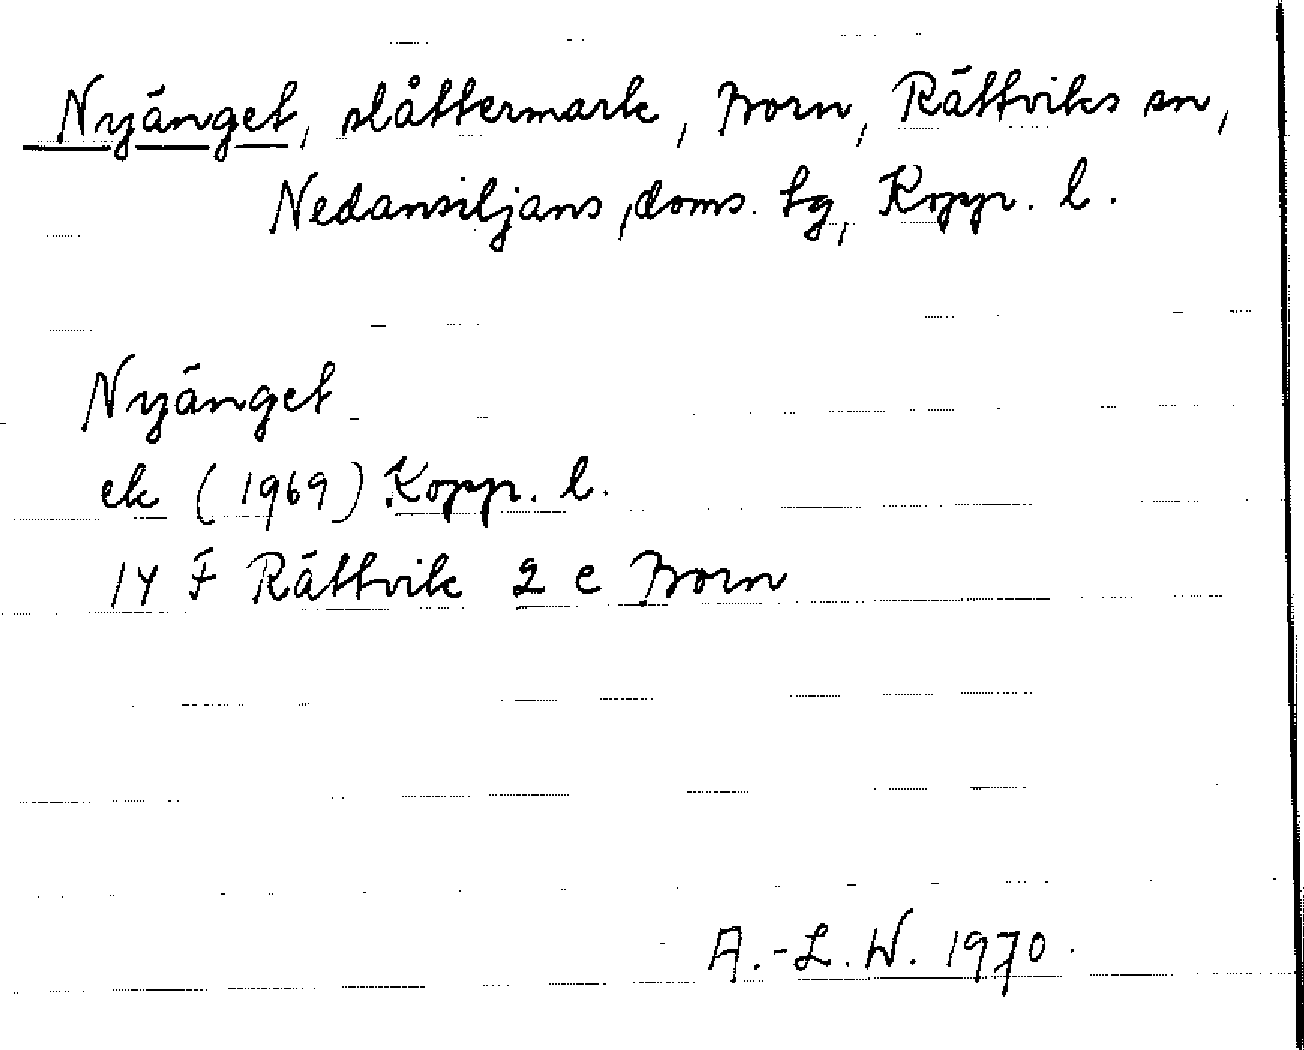 Nyänget, slåttermark, Born, Rättviks sn,
Nedansiljans, doms. tg, Kopp. l.
Nyänget
ek (1969) Kopp. l.
14 F Rättvik 2 c Born
A.-L.W. 1970